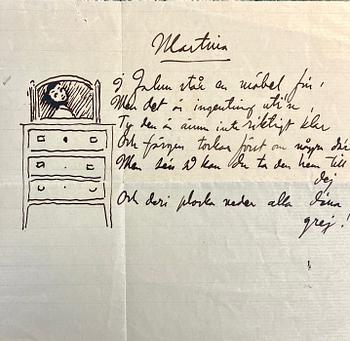 Martina
I Jalun står en möbel fin,
Men det är ingenting utise,
Ty den är ännu inte riktigt klar
Och färgen torkar först om några dar
Men sen så kan Du ta den hem till
dej
Och deri plocka neder alla dina
grej!